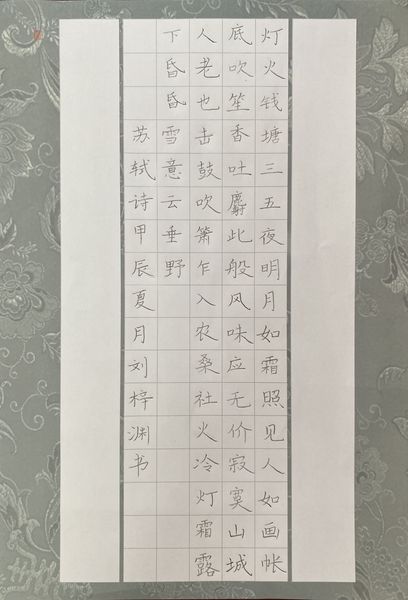 灯火钱塘三五夜明月如霜照见人如画帐
底吹笙香吐麝此般风味应无价寂寞山城
人老也击鼓吹箫乍入农桑社火冷灯霜露
下昏昏雪意云垂野
苏轼诗甲辰夏月刘梓渊书